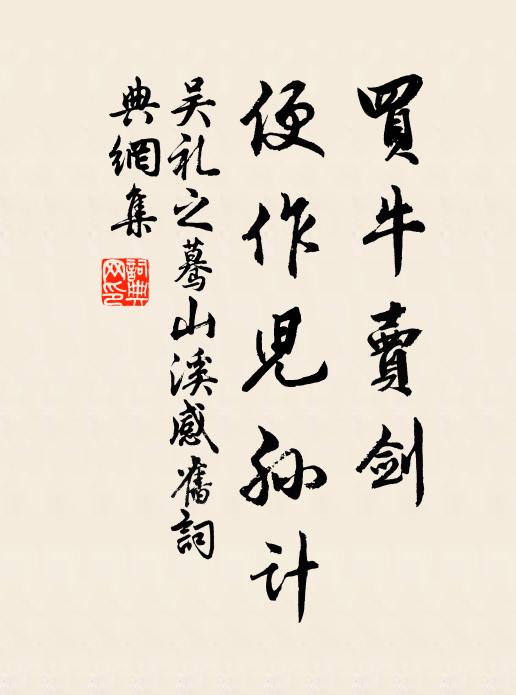 買牛賣劍
便作児孫計
吴礼之蓦山溪感舊詞
典網集
詞典
网印